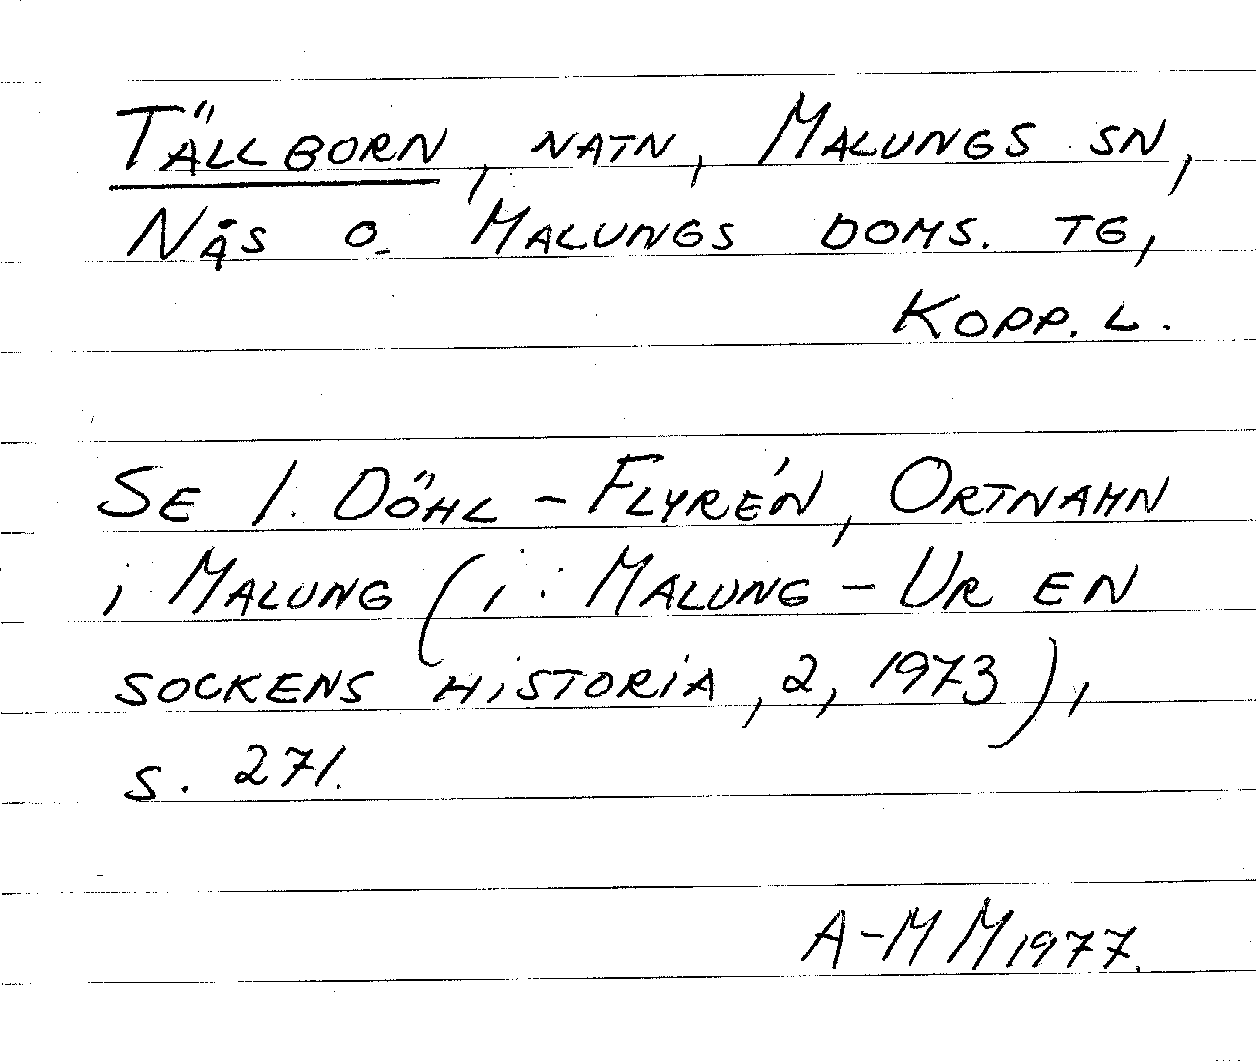 TÄLLBORN, NATN, MALUNGS SN,
NÅS O. MALUNGS DOMS. TG,
KOPP. L.
SE I. DÖHL-FLYRÉN, ORTNAMN
i MALUNG (i: MALUNG - UR EN
SOCKENS HiSTORiA, 2, 1973),
S. 271.
A-M M 1977.